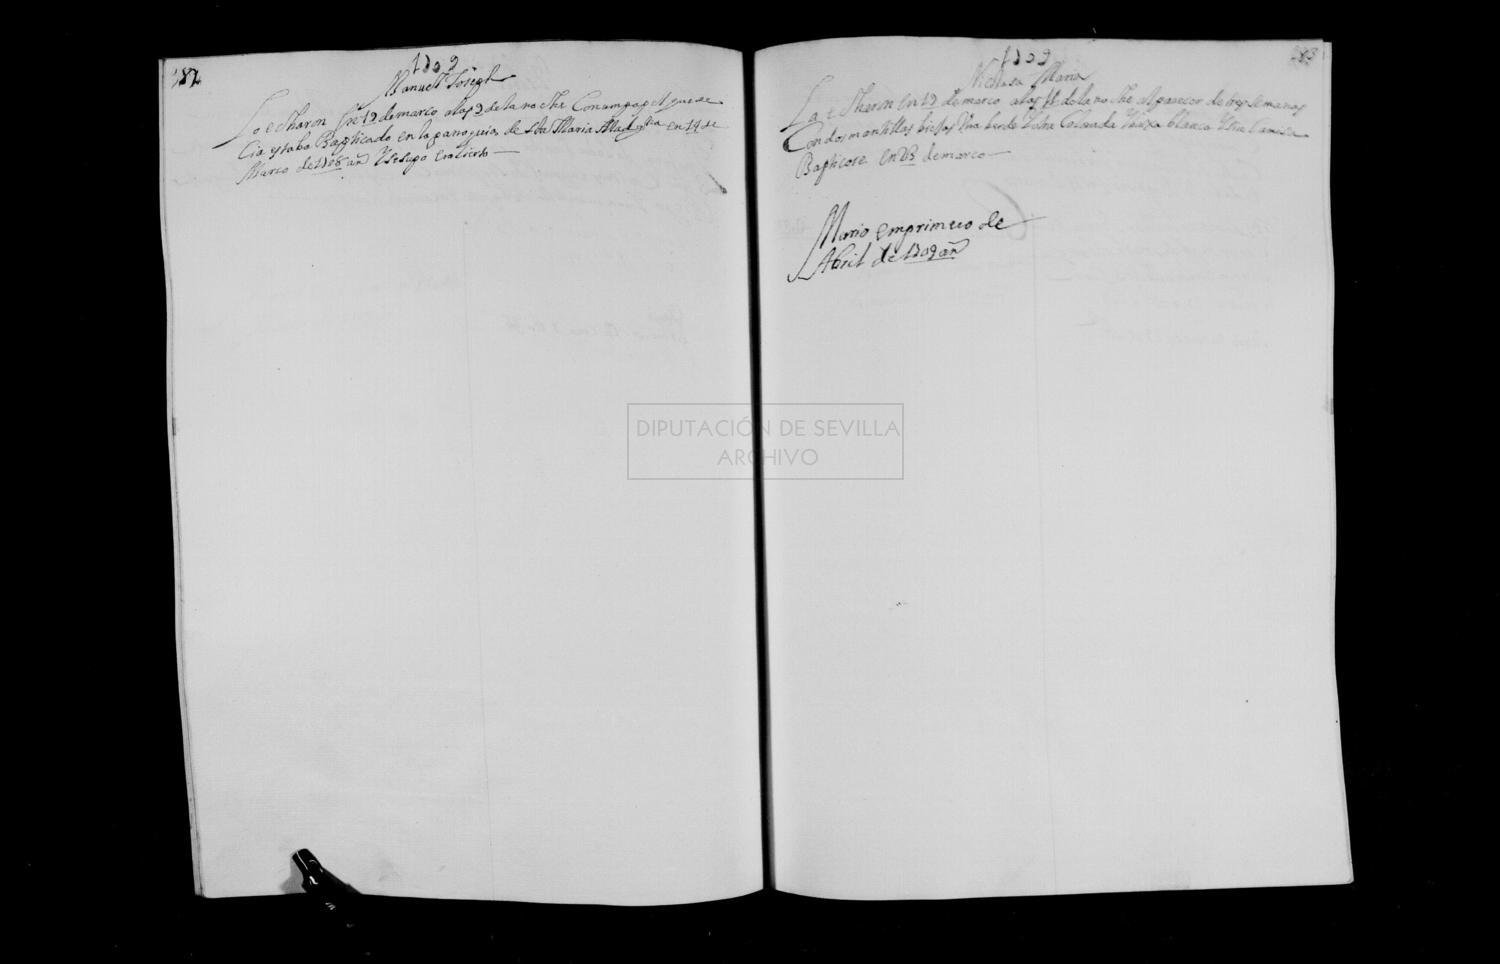 182
1709
Manuel Joseph
Lo echaron En 19 de marco alas 9 de la noche Con un papel que de
Cia estaba Baptiçado en la parroquia de Sta Maria Magna en 14 de
Março de 1708 añ Y se supo era cierto
183
1709
Nicolasa Maria
La echaron en 19 de marco alas de la noche al parecer de tres semanas
Con dos mantillas biejas Una berde Yotra Colorada faixa blanca Y Una Camisa
Baptiçose en 23 de marco
Mario en primero de
Abril de 1709 añ
DIPUTACIÓN DE SEVILLA
ARCHIVO